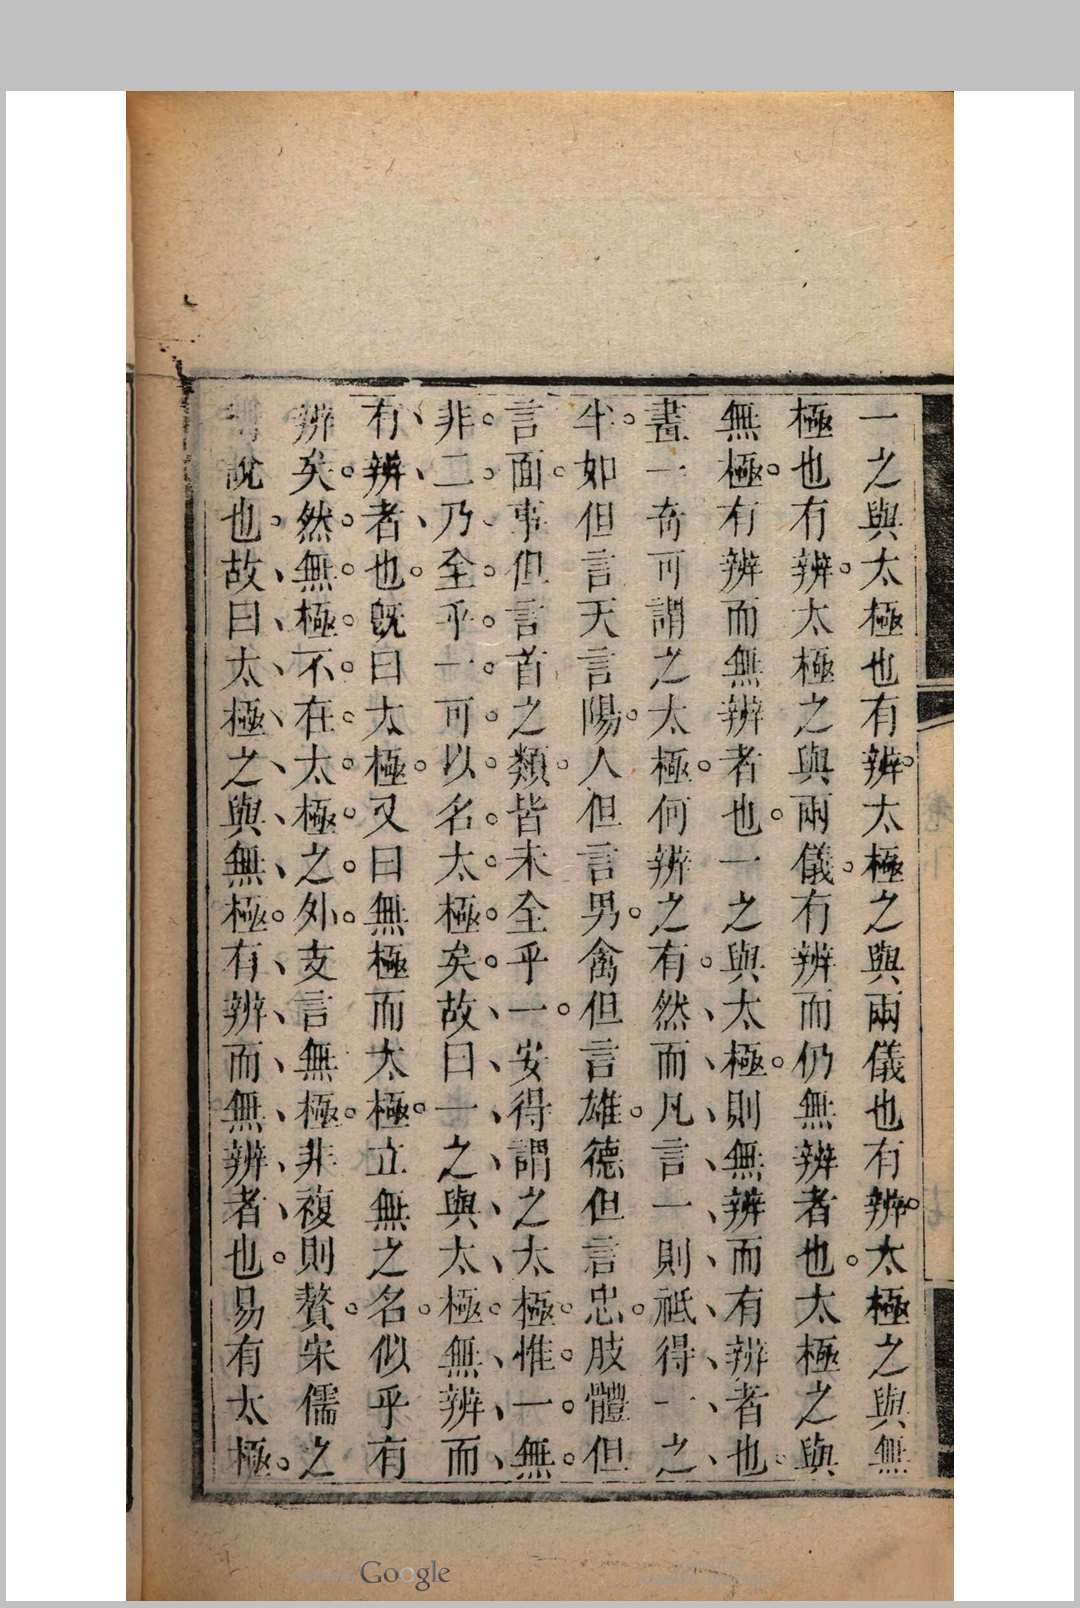 一之與太極也有辨太極之與兩儀也有辨太極之與無
極也有辨太極之與兩儀有辨而仍無辨者也太極之與
無極有辨而無辨者也一之與太極則無辨而有辨者也
畫一奇可謂之太極何辨之有然而凡言一則祗得一之
半如但言天言陽人但言男禽但言雄德但言忠肢體但
言面事但言首之類皆未全乎一安得謂之太極惟一無
非二乃全乎一可以名太極矣故曰一之與太極無辨而
有辨者也旣曰太極又曰無極而太極立無之名似乎有
辨矣然無極不在太極之外支言無極非複則贅宋儒之
說也故曰太極之與無極有辨而無辨者也易有太極
Google